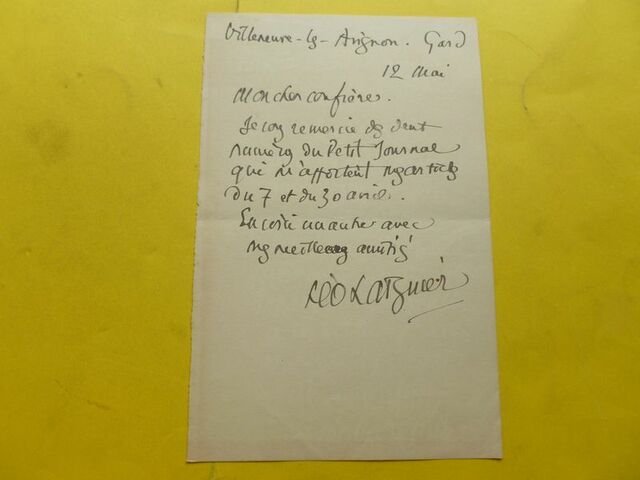 Villeneuve-lès-Avignon. Gard
12 mai
Mon cher confrère.
Je vous remercie des deux
numéros du Petit Journal
qui m'apportent mes articles
du 7 et du 30 avril.
En voici un autre avec
mes meilleures amitiés
Léo Larguier